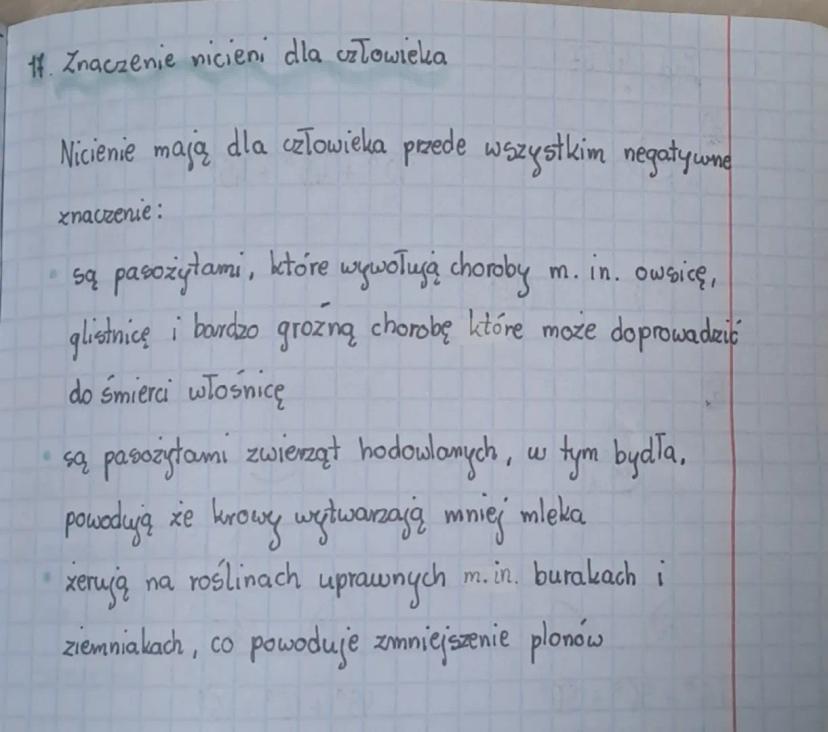 17. Znaczenie nicieni dla człowieka
Nicienie mają dla człowieka przede wszystkim negatywne
znaczenie:
są pasożytami, które wywołują choroby m. in. owsicę,
glistnicę i bardzo groźną chorobę które może doprowadzić
do śmierci włośnicę
są pasożytami zwierząt hodowlanych, w tym bydła,
powodują że krowy wytwarzają mniej mleka
żerują na roślinach uprawnych m.in. burakach i
ziemniakach, co powoduje zmniejszenie plonów